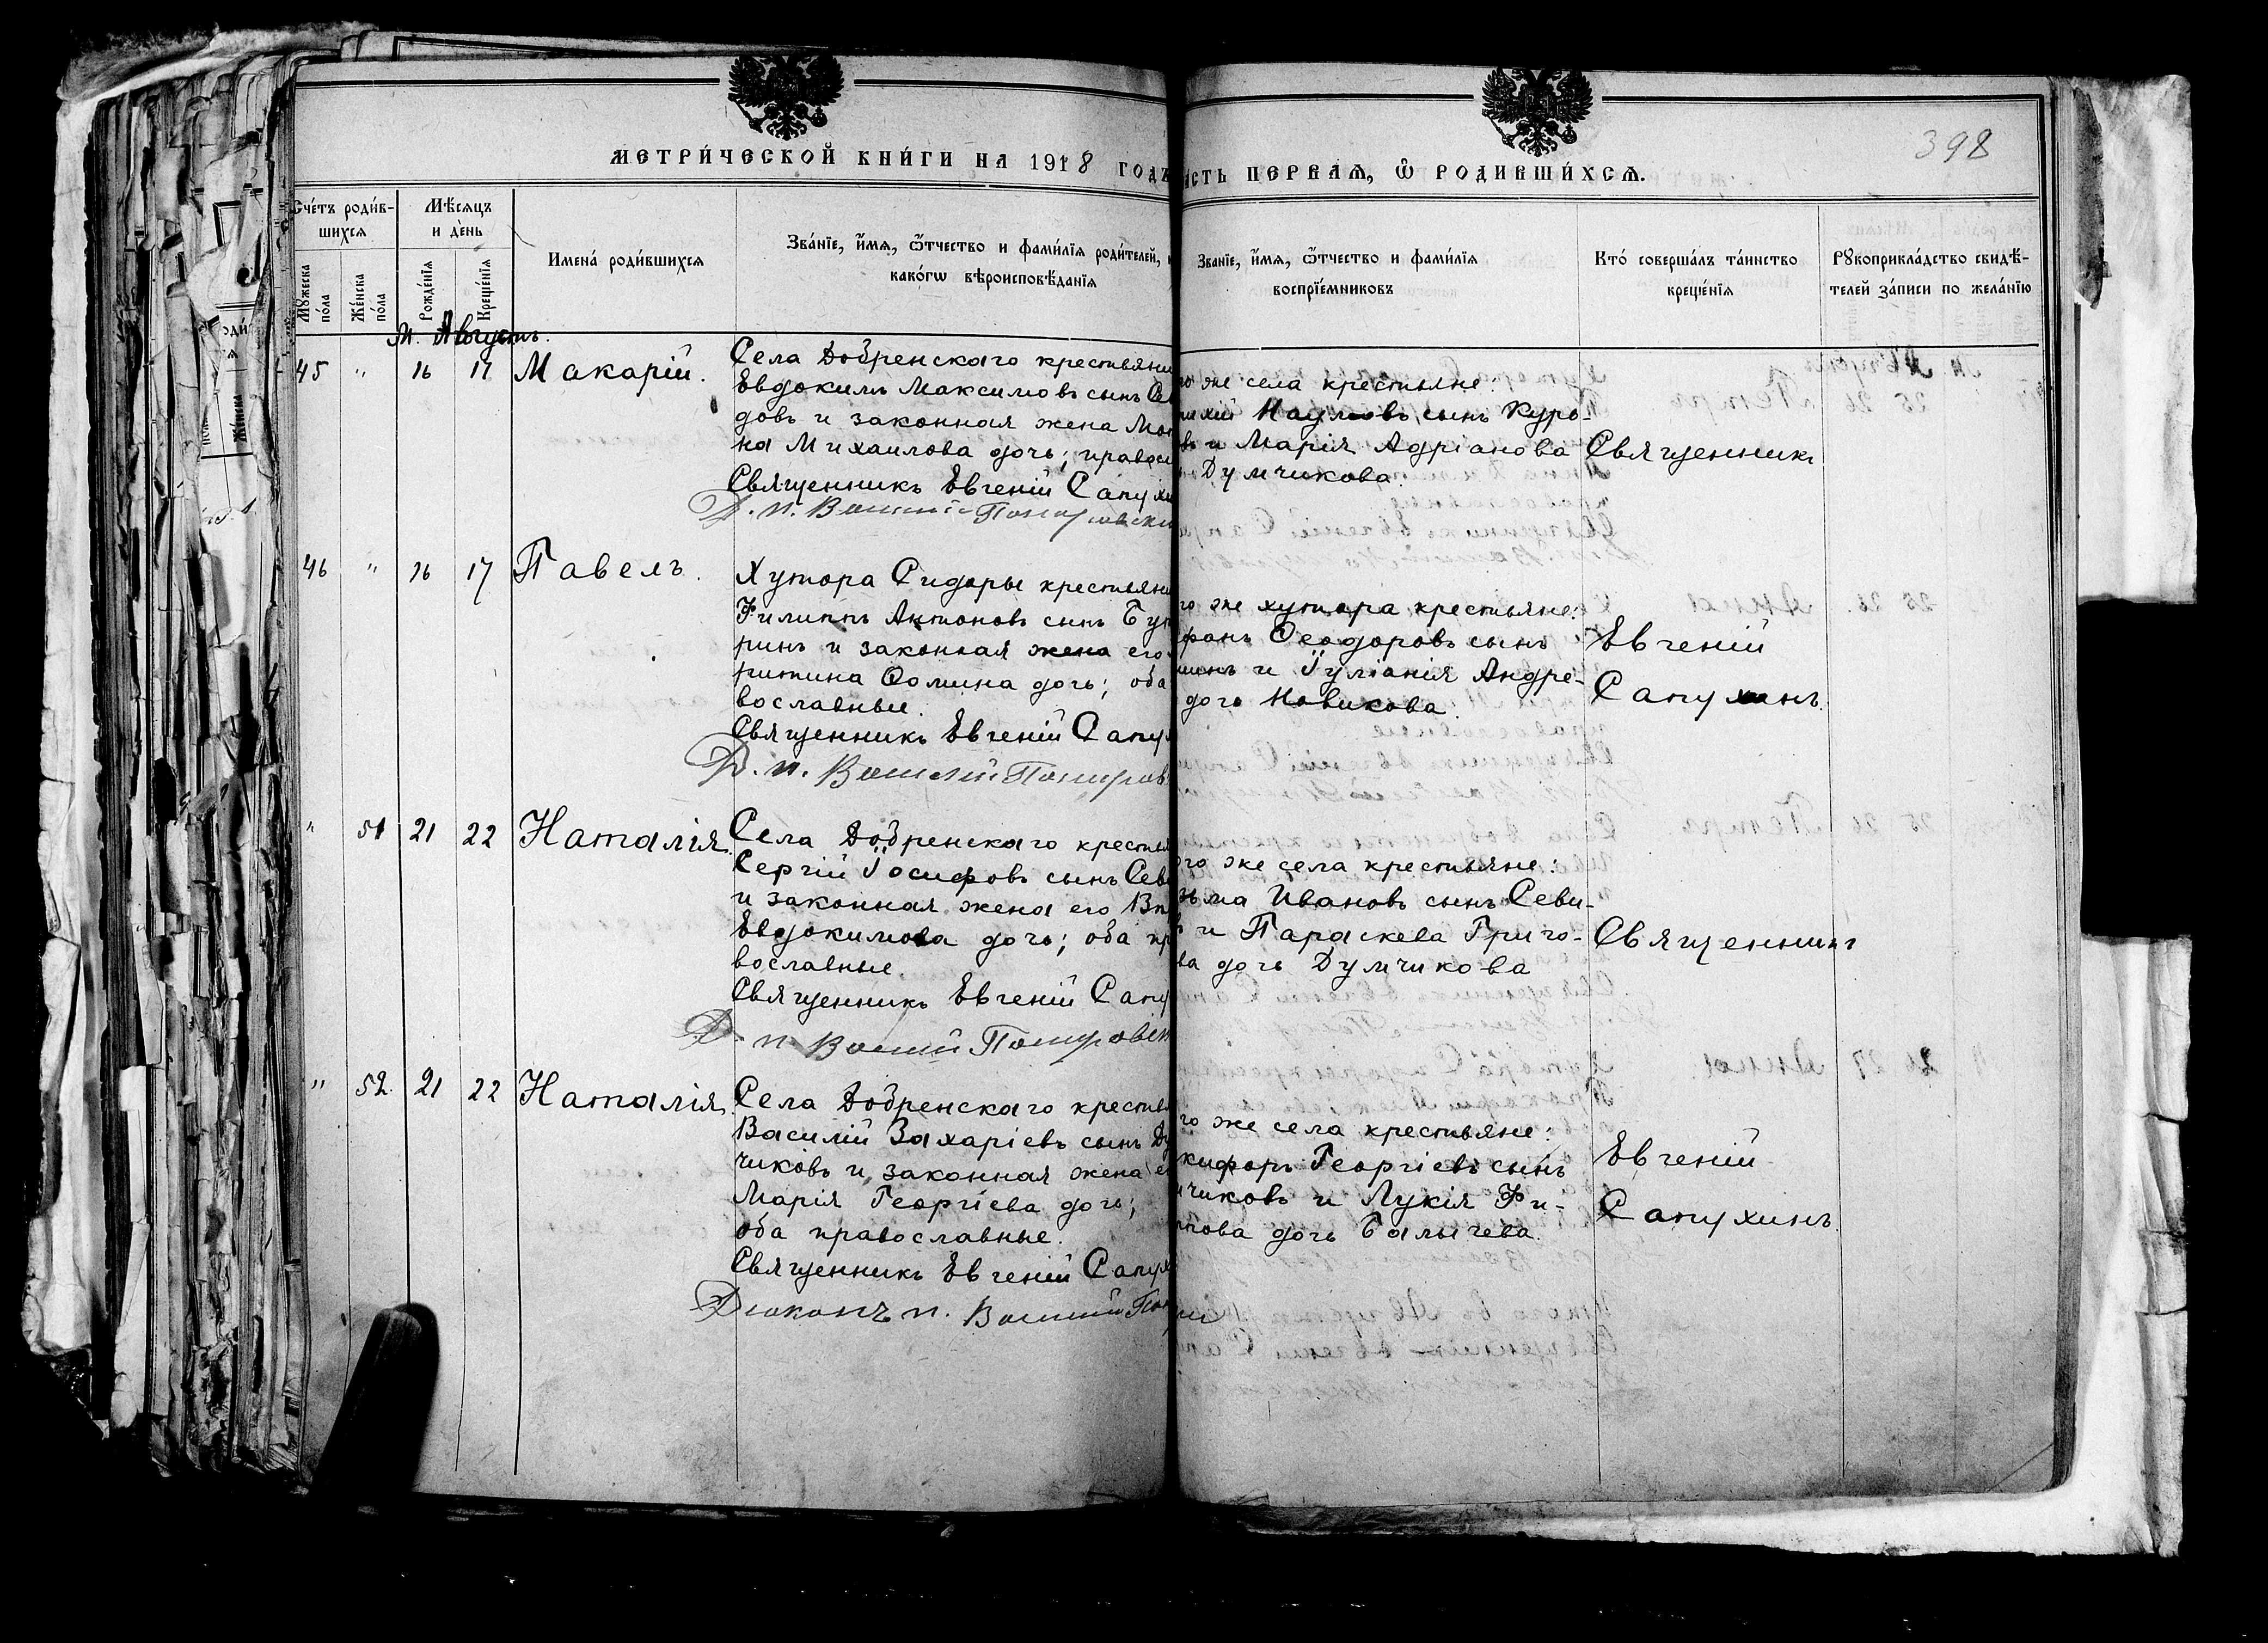 398
МЕТРИ́ЧЕСКОЙ КНИ́ГИ НА 1918 ГОДЪ
СТЬ ПЕРВАѦ, Ѿ РОДИВШИ́ХСѦ.
Счетъ роди́в-
шихсѧ
Мѣ́сѧцъ
и де́нь
Имена́ роди́вшихсѧ
Зва́нїе, и́мѧ, ѻ́тчество и фами́лїѧ роди́телей,
како́гѡ вѣроисповѣ́данїѧ
Зва́нїе, и́мѧ, ѻ́тчество и фами́лїѧ
воспрїе́мниковъ
Кто́ соверша́лъ та́инство
креще́нїѧ
Рꙋкоприкла́дство свидѣ́-
телей за́писи по жела́нїю
Мꙋ́жеска
по́ла
Же́нска
по́ла
Рожде́нїѧ
Креще́нїѧ
М. Августъ.
45 " 16 17 Макарій.
Села Добренскаго крестьяни
Евдокимъ Максимовъ сынъ Се
довъ и законная жена Мат
на Михаилова дочь; правосл
Священникъ Евгеній Сапухи
Д. п. Василій
го же села крестьяне:
Наумовъ сынъ Куро-
въ и Марія Адріанова
Думчикова.
Священникъ
46 " 16 17 Павелъ.
Хутора Сидоры крестьяни
Филиппъ Антоновъ сынъ Бут
ринъ и законная жена его
Ѳомина дочь; оба
вославные.
Священникъ Евгеній Сапу
Д. п. Василій
го же хутора крестьяне:
фанъ Ѳеодоровъ сынъ
и Іуліанія Андре-
дочь Новикова.
Евгеній
Сапухинъ.
" 51 21 22 Наталія.
Села Добренскаго крестья
Сергій Іосифовъ сынъ Сев
и законная жена его
Евдокимова дочь; оба пр
вославные.
Священникъ Евгеній Сапу
Д. п. Василій
го же села крестьяне:
зьма Ивановъ сынъ Севи-
и Параскева Григо-
ва дочь Думчикова
Священникъ
" 52. 21 22 Наталія.
Села Добренскаго крестья
Василій Захаріевъ сынъ Ду
чиковъ и законная жена е
Марія Георгіева дочь;
оба православные.
Священникъ Евгеній Сапух
Діаконъ п. Василій
го же села крестьяне:
кифоръ Георгіевъ сынъ
чиковъ и Лукія Фи-
пова дочь Балычева.
Евгеній
Сапухинъ.